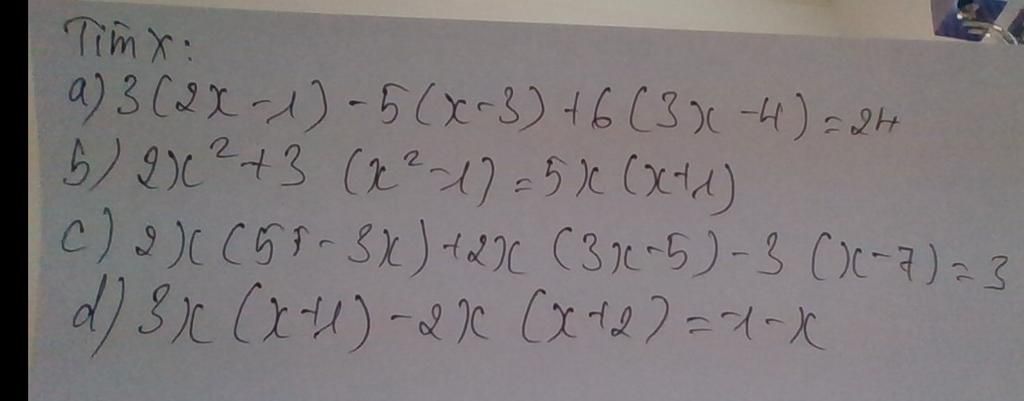 Tìm x:
a) 3(2x-1)-5(x-3)+6(3x-4)=24
b) 2x²+3(x²-1)=5x(x+1)
c) 2x(5-3x)+2x(3x-5)-3(x-7)=3
d) 3x(x+1)-2x(x+2)=-1-x